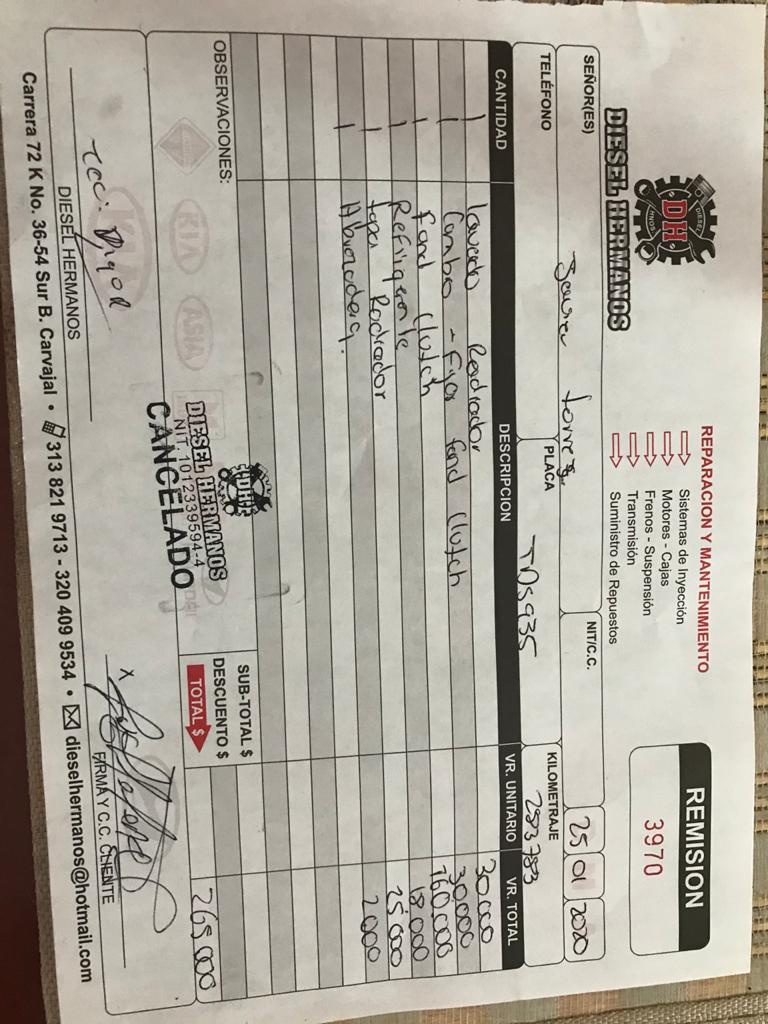 DIESEL HNOS
DH
DIESEL HERMANOS
REPARACION Y MANTENIMIENTO
Sistemas de Inyección
Motores - Cajas
Frenos - Suspensión
Transmisión
Suministro de Repuestos
REMISION
3970
SEÑOR(ES) Torres NIT/C.C. 25 01 2020
TELÉFONO PLACA KILOMETRAJE 283783
CANTIDAD DESCRIPCION VR. UNITARIO VR. TOTAL
1 Lavado Radiador 30.000
1 Cambio - Fijar Fand Clutch 30.000
1 Fand Clutch 160.000
1 Refrigerante 18.000
1 tapa Radiador 25.000
1 Abrazadera. 2.000
OBSERVACIONES:
KIA ASIA
DH
DIESEL HERMANOS
NIT. 1012339594-4
CANCELADO
SUB-TOTAL $
DESCUENTO $
TOTAL $ 265.000
DIESEL HERMANOS
X
FIRMA Y C.C. CLIENTE
Carrera 72 K No. 36-54 Sur B. Carvajal • 313 821 9713 - 320 409 9534 • dieselhermanos@hotmail.com